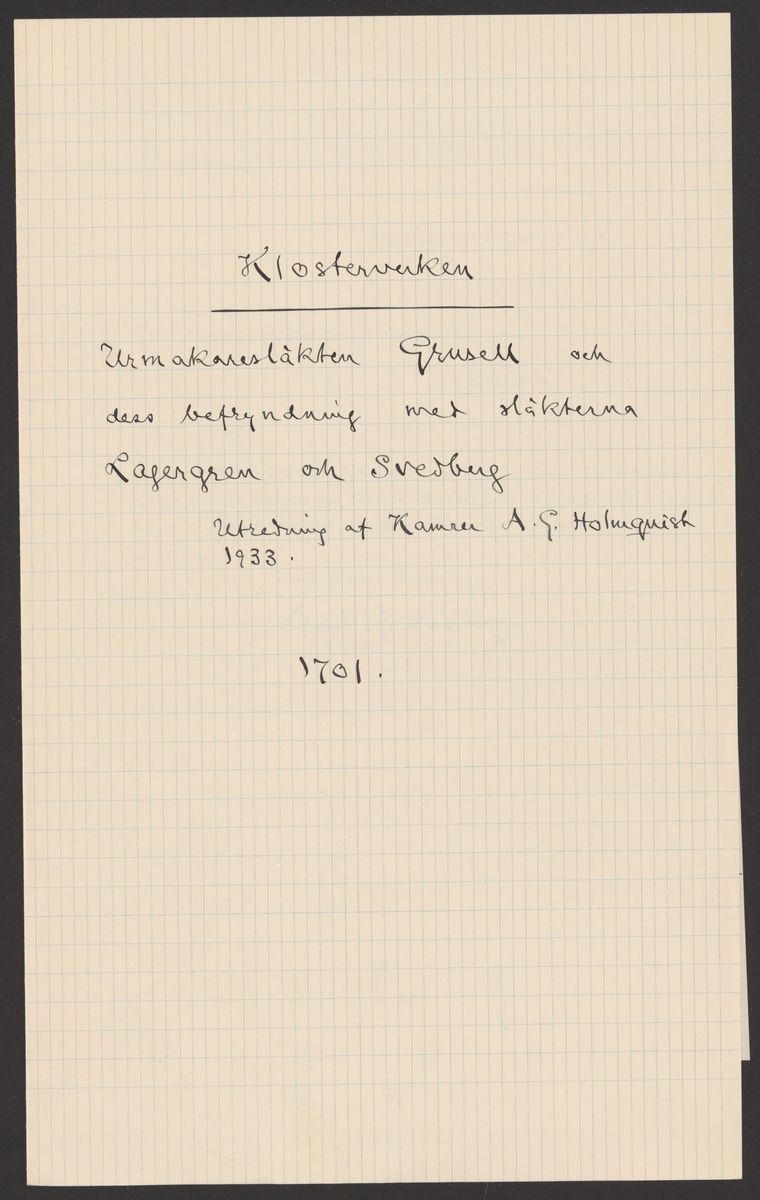 Klosterverken
Urmakaresläkten Grusell och
dess befryndning med släkterna
Lagergren och Svedberg
Utredning af Kamrer A. G. Holmquist
1933.
1701.